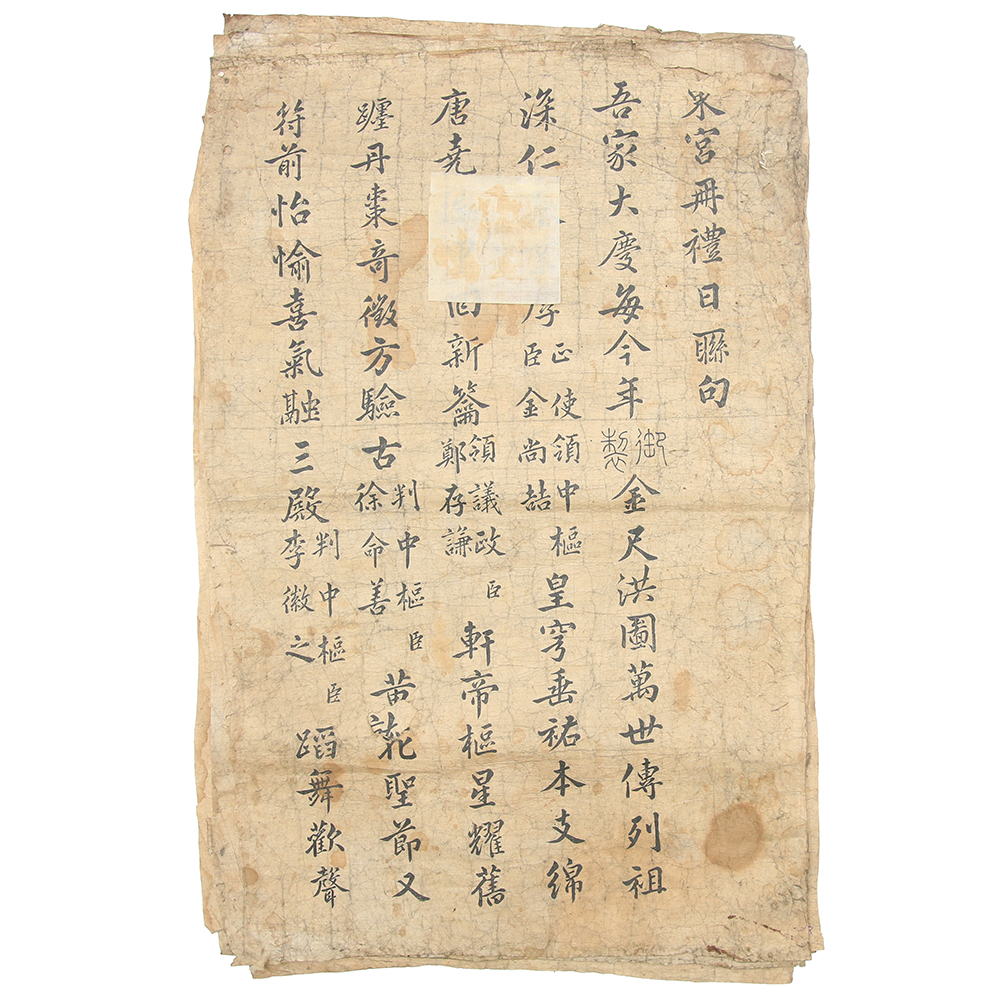 東宮冊禮日聯句
吾家大慶每今年御製金尺洪圖萬世傳列祖
深仁厚正使領中樞臣金尚喆皇穹垂祐本支綿
唐堯新籥領議政臣鄭存謙軒帝樞星耀舊
躔丹棗奇徵方驗古判中樞臣徐命善聖節又
符前怡愉喜氣融三殿判中樞臣李徽之蹈舞歡聲